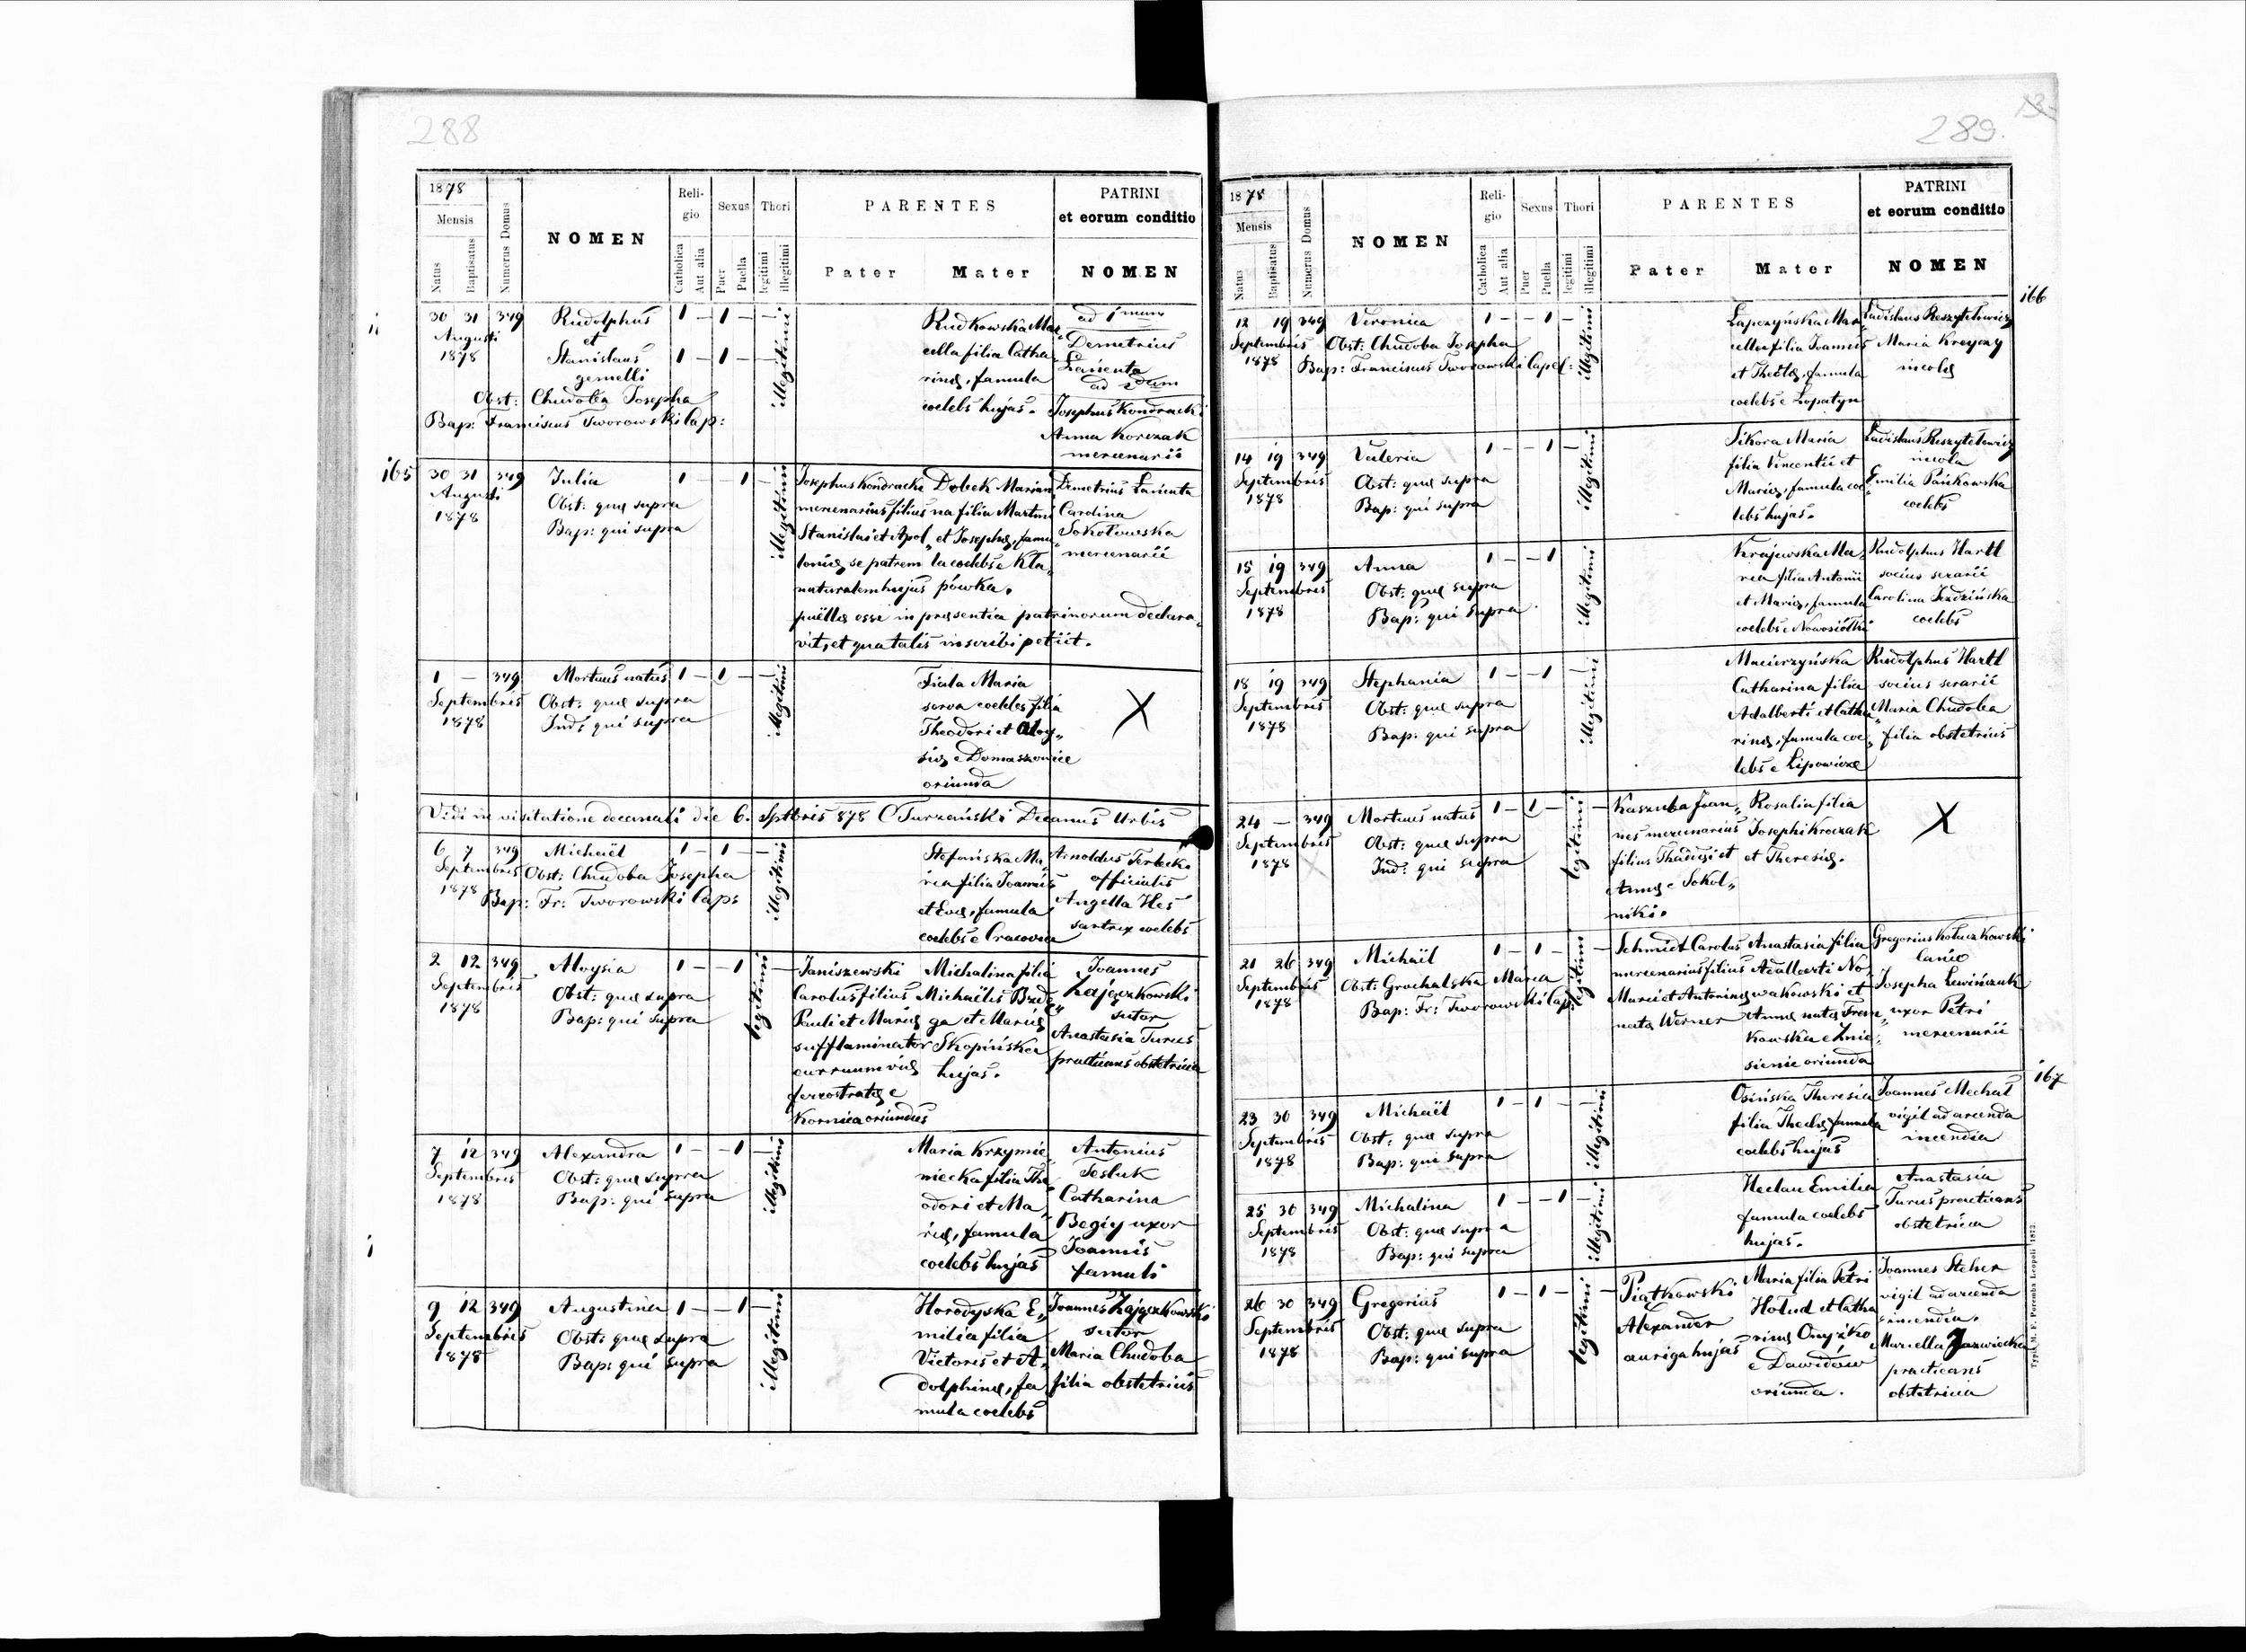 288
1878
Mensis
Natus
Baptisatus
Numerus Domus
NOMEN
Reli-
gio
Catholica
Aut alia
Sexus
Puer
Puella
Thori
legitimi
illegitimi
PARENTES
Pater
Mater
PATRINI
et eorum conditio
NOMEN
30 31 349 Rudolphus 1 – 1 – –
Augusti
1878
et
Stanislaus 1 – 1 –
gemelli
Obst: Chudoba Josepha
Bap: Franciscus Tworowski Cap:
illegitimi
Rudkowska Mar
cella filia Catha
rinę, famula
coelebs hujas.
ad 1mum
Demetrius
Łarienta
ad 2dum
Josephus Kondracki
Anna Korczak
mercenarii
165
30 31 349 Julia 1 – – 1 –
Augusti
1878
Obst: quę supra
Bap: qui supra
illegitimi
Josephus Kondracki
mercenarius filius
Stanislai et Apol„
lonię, se patrem
naturalem hujus
Dobek Marian
na filia Martini
et Josephę, famu„
la coelebs e Kła„
pówka.
puellę esse in pręsentia patrinorum declara„
vit, et qua talis inscribi petiit.
Demetrius Łarienta
Carolina
Sokołowska
mercenarii
1 – 349 Mortuus natus 1 – 1 – –
Septembris
1878
Obst: quę supra
Ind: qui supra
illegitimi
Ficula Maria
serva coelebs filia
Theodori et Aloy„
się, e Domaszowice
oriunda
X
Vidi in visitatione decanali die 6. Sptbris 878 O Turzański Decanus Urbis
6 7 349 Michaël 1 – 1 – –
Septembris
1878
Obst: Chudoba Josepha
Bap: Fr: Tworowski Cap:
illegitimi
Stefańska Ma„
ria filia Joannis
et Evę, famula
coelebs e Cracovia
Arnoldus Terlecki
officialis
Angella Hes
sartrix coelebs
2 12 349 Aloysia 1 – – 1 –
Septembris
1878
Obst: quę supra
Bap: qui supra
legitimi
Janiszewski
Carolus filius
Pauli et Marię
sufflaminator
curruum vię
ferrostratę e
Kornica oriundus
Michalina filia
Michaëlis Bzde
ga et Marię
Skopińska
hujas.
Joannes
Zajączkowski
sutor
Anastasia Turus
practicans obstetricia
7 12 349 Alexandra 1 – – 1 –
Septembris
1878
Obst: quę supra
Bap: qui supra
illegitimi
Maria Krzymie„
niecka filia The
odori et Ma„
rię, famula
coelebs hujas
Antonius
Tesluk
Catharina
Begiy uxor
Joannis
famuli
9 12 349 Augustina 1 – – 1 –
Septembris
1878
Obst: quę supra
Bap: qui supra
illegitimi
Horodyska E„
milia filia
Victoris et A„
dolphinę, fa
mula coelebs
Joannes Zajączkowski
sutor
Maria Chudoba
filia obstetricis
289.
1878
Mensis
Natus
Baptisatus
Numerus Domus
NOMEN
Reli-
gio
Catholica
Aut alia
Sexus
Puer
Puella
Thori
legitimi
illegitimi
PARENTES
Pater
Mater
PATRINI
et eorum conditio
NOMEN
166
12 19 349 Veronica 1 – – 1 –
Septembris
1878
Obst: Chudoba Josepha
Bap: Franciscus Tworowski Capel:
illegitimi
Łapczyńska Mar„
cella filia Joannis
et Theklę, famula
coelebs e Łopatyn
Ladislaus Reszytełowicz
Maria Kreyczy
incolę
14 19 349 Valeria 1 – – 1 –
Septembris
1878
Obst: quę supra
Bap: qui supra
illegitimi
Sikora Maria
filia Vincentii et
Marię, famula coe„
lebs hujas.
Ladislaus Reszytełowicz
incola
Emilia Pańkowska
coelebs
15 19 349 Anna 1 – – 1
Septembris
1878
Obst: quę supra
Bap: qui supra
illegitimi
Krajewska Ma„
ria filia Antonii
et Marię, famula
coelebs e Nowosiółki
Rudolphus Hartl
socius serarii
Carolina
coelebs
18 19 349 Stephania 1 – – 1 –
Septembris
1878
Obst: quę supra
Bap: qui supra
illegitimi
Macierzyńska
Catharina filia
Adalberti et Catha„
rinę, famula coe„
lebs e Lipowice
Rudolphus Hartl
socius serarii
Maria Chudoba
filia obstetricis
24 – 349 Mortuus natus 1 – 1 –
Septembris
1878
Obst: quę supra
Ind: qui supra
legitimi
Kaszuba Joan„
nes mercenarius
filius Thadęi et
Annę e Sokol„
niki.
Rosalia filia
Josephi Kroczak
et Theresię.
X
21 26 349 Michaël 1 – 1 –
Septembris
1878
Obst: Grochalska Maria
Bap: Fr: Tworowski Cap
legitimi
Schmidt Carolus
mercenarius filius
Marci et Antoninę
natę Werner
Anastasia filia
Adalberti No„
wakowski et
Annę natę Frem„
kowska e Znie„
sienie oriunda
Gregorius Kołuczkowski
lanio
Josepha Lewińczuk
uxor Petri
mercenarii
167
23 30 349 Michaël 1 – 1 – –
Septembris
1878
Obst: quę supra
Bap: qui supra
illegitimi
Osińska Theresia
filia Theclę, famula
coelebs hujas
Joannes Mechal
vigil ad arcenda
incendia
25 30 349 Michalina 1 – – 1 –
Septembris
1878
Obst: quę supra
Bap: qui supra
illegitimi
Heclau Emilia
famula coelebs
hujas.
Anastasia
Turus practicans
obstetricia
26 30 349 Gregorius 1 – 1 –
Septembris
1878
Obst: quę supra
Bap: qui supra
legitimi
Piątkowski
Alexander
auriga hujas
Maria filia Petri
Hołud et Catha
rinę Onyżko
e Dawidów
oriunda.
Joannes Steher
vigil ad arcenda
incendia.
Marcella Jaxwiecka
practicans
obstetricia
Typis M. F. Poremba Leopoli 1873.